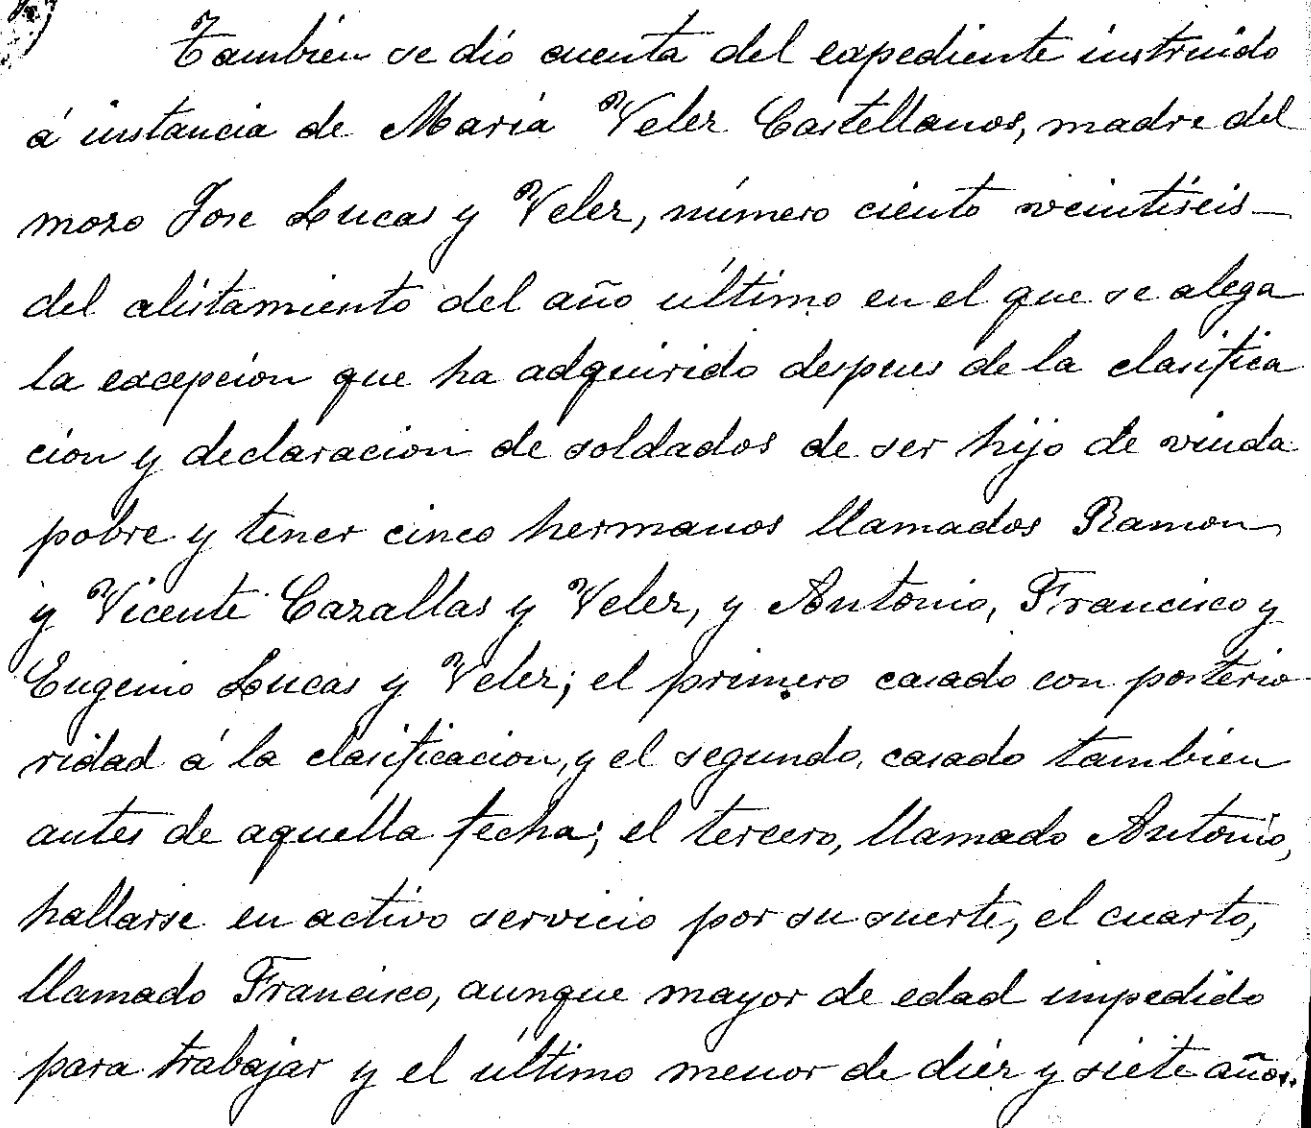 Tambien se dió cuenta del expediente instruido
á instancia de Maria Velez Castellanos, madre del
mozo Jose Lucas y Velez, número ciento veintiseis
del alistamiento del año último en el que se alega
la excepcion que ha adquirido despues de la clasifica
cion y declaracion de soldados de ser hijo de viuda
pobre y tener cinco hermanos llamados Ramon
y Vicente Cazallas y Velez, y Antonio, Francisco y
Eugenio Lucas y Velez; el primero casado con posterio-
ridad á la clasificacion, y el segundo, casado tambien
antes de aquella fecha; el tercero, llamado Antonio,
hallarse en activo servicio por su suerte, el cuarto,
llamado Francisco, aunque mayor de edad impedido
para trabajar y el último menor de diez y siete años.